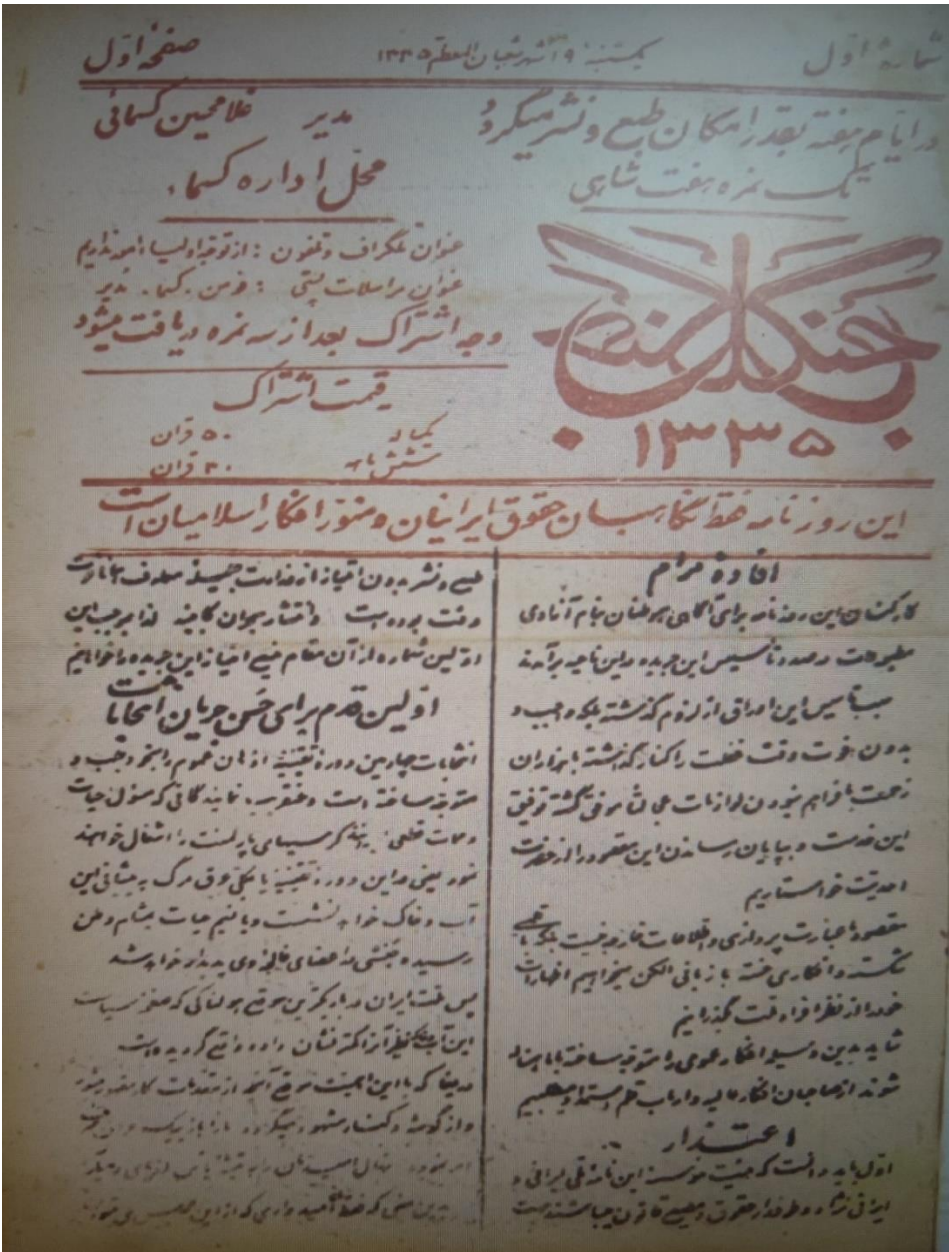 شماره اول
یکشنبه ۱۹ شهر شعبان المعظم ۱۳۳۵
صفحه اول
در ایام هفته بقدر امکان طبع و نشر میگردد
یک نمره هفت شاهی
جنگل
۱۳۳۵
مدیر غلامحسین کسمائی
محل اداره کسماء
عنوان تلگراف و تلفون : از توجه اولیاء امور نداریم
عنوان مراسلات پستی : فومن . کسما . مدیر
وجه اشتراک بعد از سه نمره دریافت میشود
قیمت اشتراک
یکساله ۵۰ قران
ششماهه ۳۰ قران
این روزنامه فقط نگاهبان حقوق ایرانیان و منور افکار اسلامیان است
افاده مرام
کارکنان این روزنامه برای آگاهی هموطنان بنام آزادی
مطبوعات درصدد تاسیس این جریده در این ناحیه برآمدند
تاسیس این اوراق از لزوم گذشته بلکه واجب و
بدون فوت وقت غفلت را کنار گذاشته با هزاران
زحمت با فراهم نمودن لوازمات موفق گشته توفیق
این خدمت و بپایان رساندن این مقصود را از حضرت
احدیت خواستاریم
مقصود ما عبارت پردازی و اطلاعات خارجه نیست بلکه با قلمی
شکسته و افکاری خسته با زبانی الکن میخواهیم اظهارات
خود را از نظر افراد ملت گذرانیم
شاید بدین وسیله افکار عمومی را متوجه ساخته با ما هم
شوند از صاحبان افکار عالیه و ارباب قلم
اعتذار
اول باید دانست که هیئت موسسه این نامه ملی ایرانی و
ایرانی نژاد و طرفدار حقوق و مطیع قانون میباشند
طبع و نشر بدون امتیاز از وزارت جلیله معارف
وقت بوده است و انتشار لذا بموجب این
اولین شماره از آن مقام منیع امتیاز این جریده را خواهیم
اولین قدم برای حسن جریان انتخابات
انتخابات چهارمین دوره تقنینیه اذهان عموم را بخود جلب و
متوجه ساخته است و عنقریب نمایندگانی که مسئول حیات
و ممات قطعی کرسیهای پارلمنت را اشغال خواهند
نمود یعنی در این دوره تقنینیه یا یکی عرق مرگ به پیشانی این
آب و خاک خواهد نشست و یا نسیم حیات بمشام وطن
رسیده جنبشی در اعضای پدیدار خواهد شد
پس ملت ایران در باریکترین موقع هولناکی که صفحه سیاست
نظیر آنرا کمتر نشان داده واقع گردیده است
با این اهمیت موقع آنچه از مقدمات کار مشهود میشود
و از گوشه و کنار مشهود میگردد باز